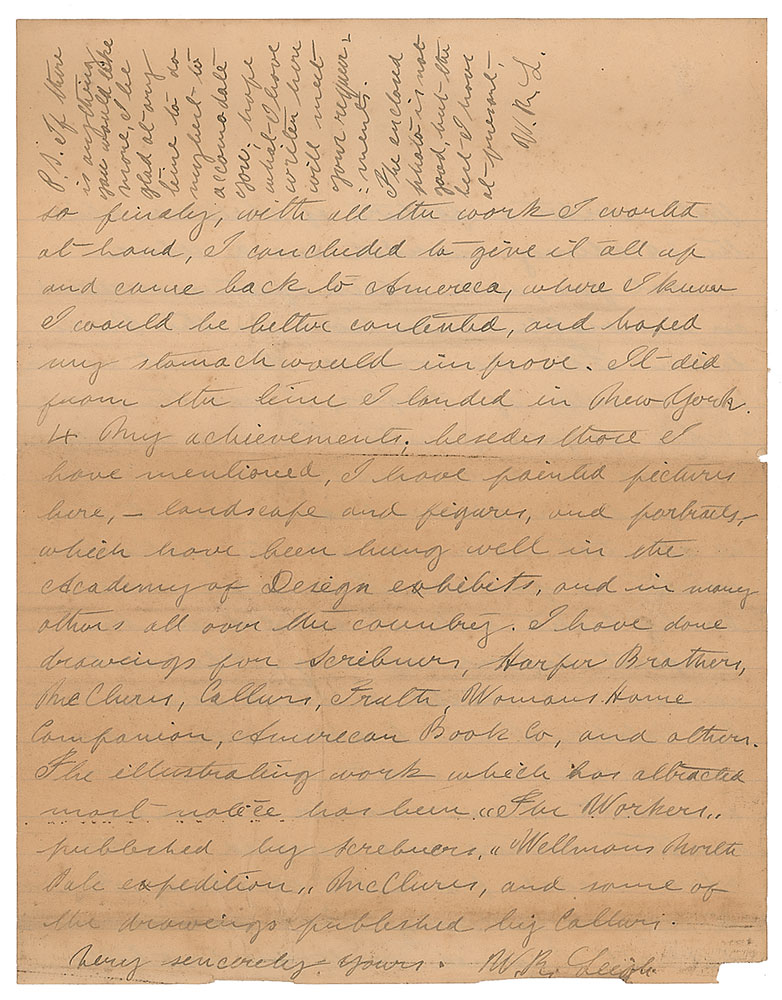 so finaly, with all the work I wanted
at hand, I concluded to give it all up
and come back to America, where I knew
I would be better contented, and hoped
my stomach would improve. It did
from the time I landed in New York.
4 My achievements; besides those I
have mentioned, I have painted pictures
here, – landscape and figures, and portraits, –
which have been hung well in the
Academy of Design exhibits, and in many
others all over the country. I have done
drawings for Scribners, Harper Brothers,
McClures, Colliers, Truth, Womans Home
Companion, American Book Co, and others.
The illustrating work which has attracted
most notice has been „The Workers„
published by Scribners, „Wellmans North
Pole expedition„ McClures, and some of
the drawings published by Colliers.
Very sincerely yours. W. R. Leigh
P.S. If there
is anything
you would like
more, I be
glad at any
time to do
my best to
accomodate
you; hope
what I have
written here
will meet
your requir-
ments.
The enclosed
photo is not
good, but the
best I have
at present,
W. R. L.